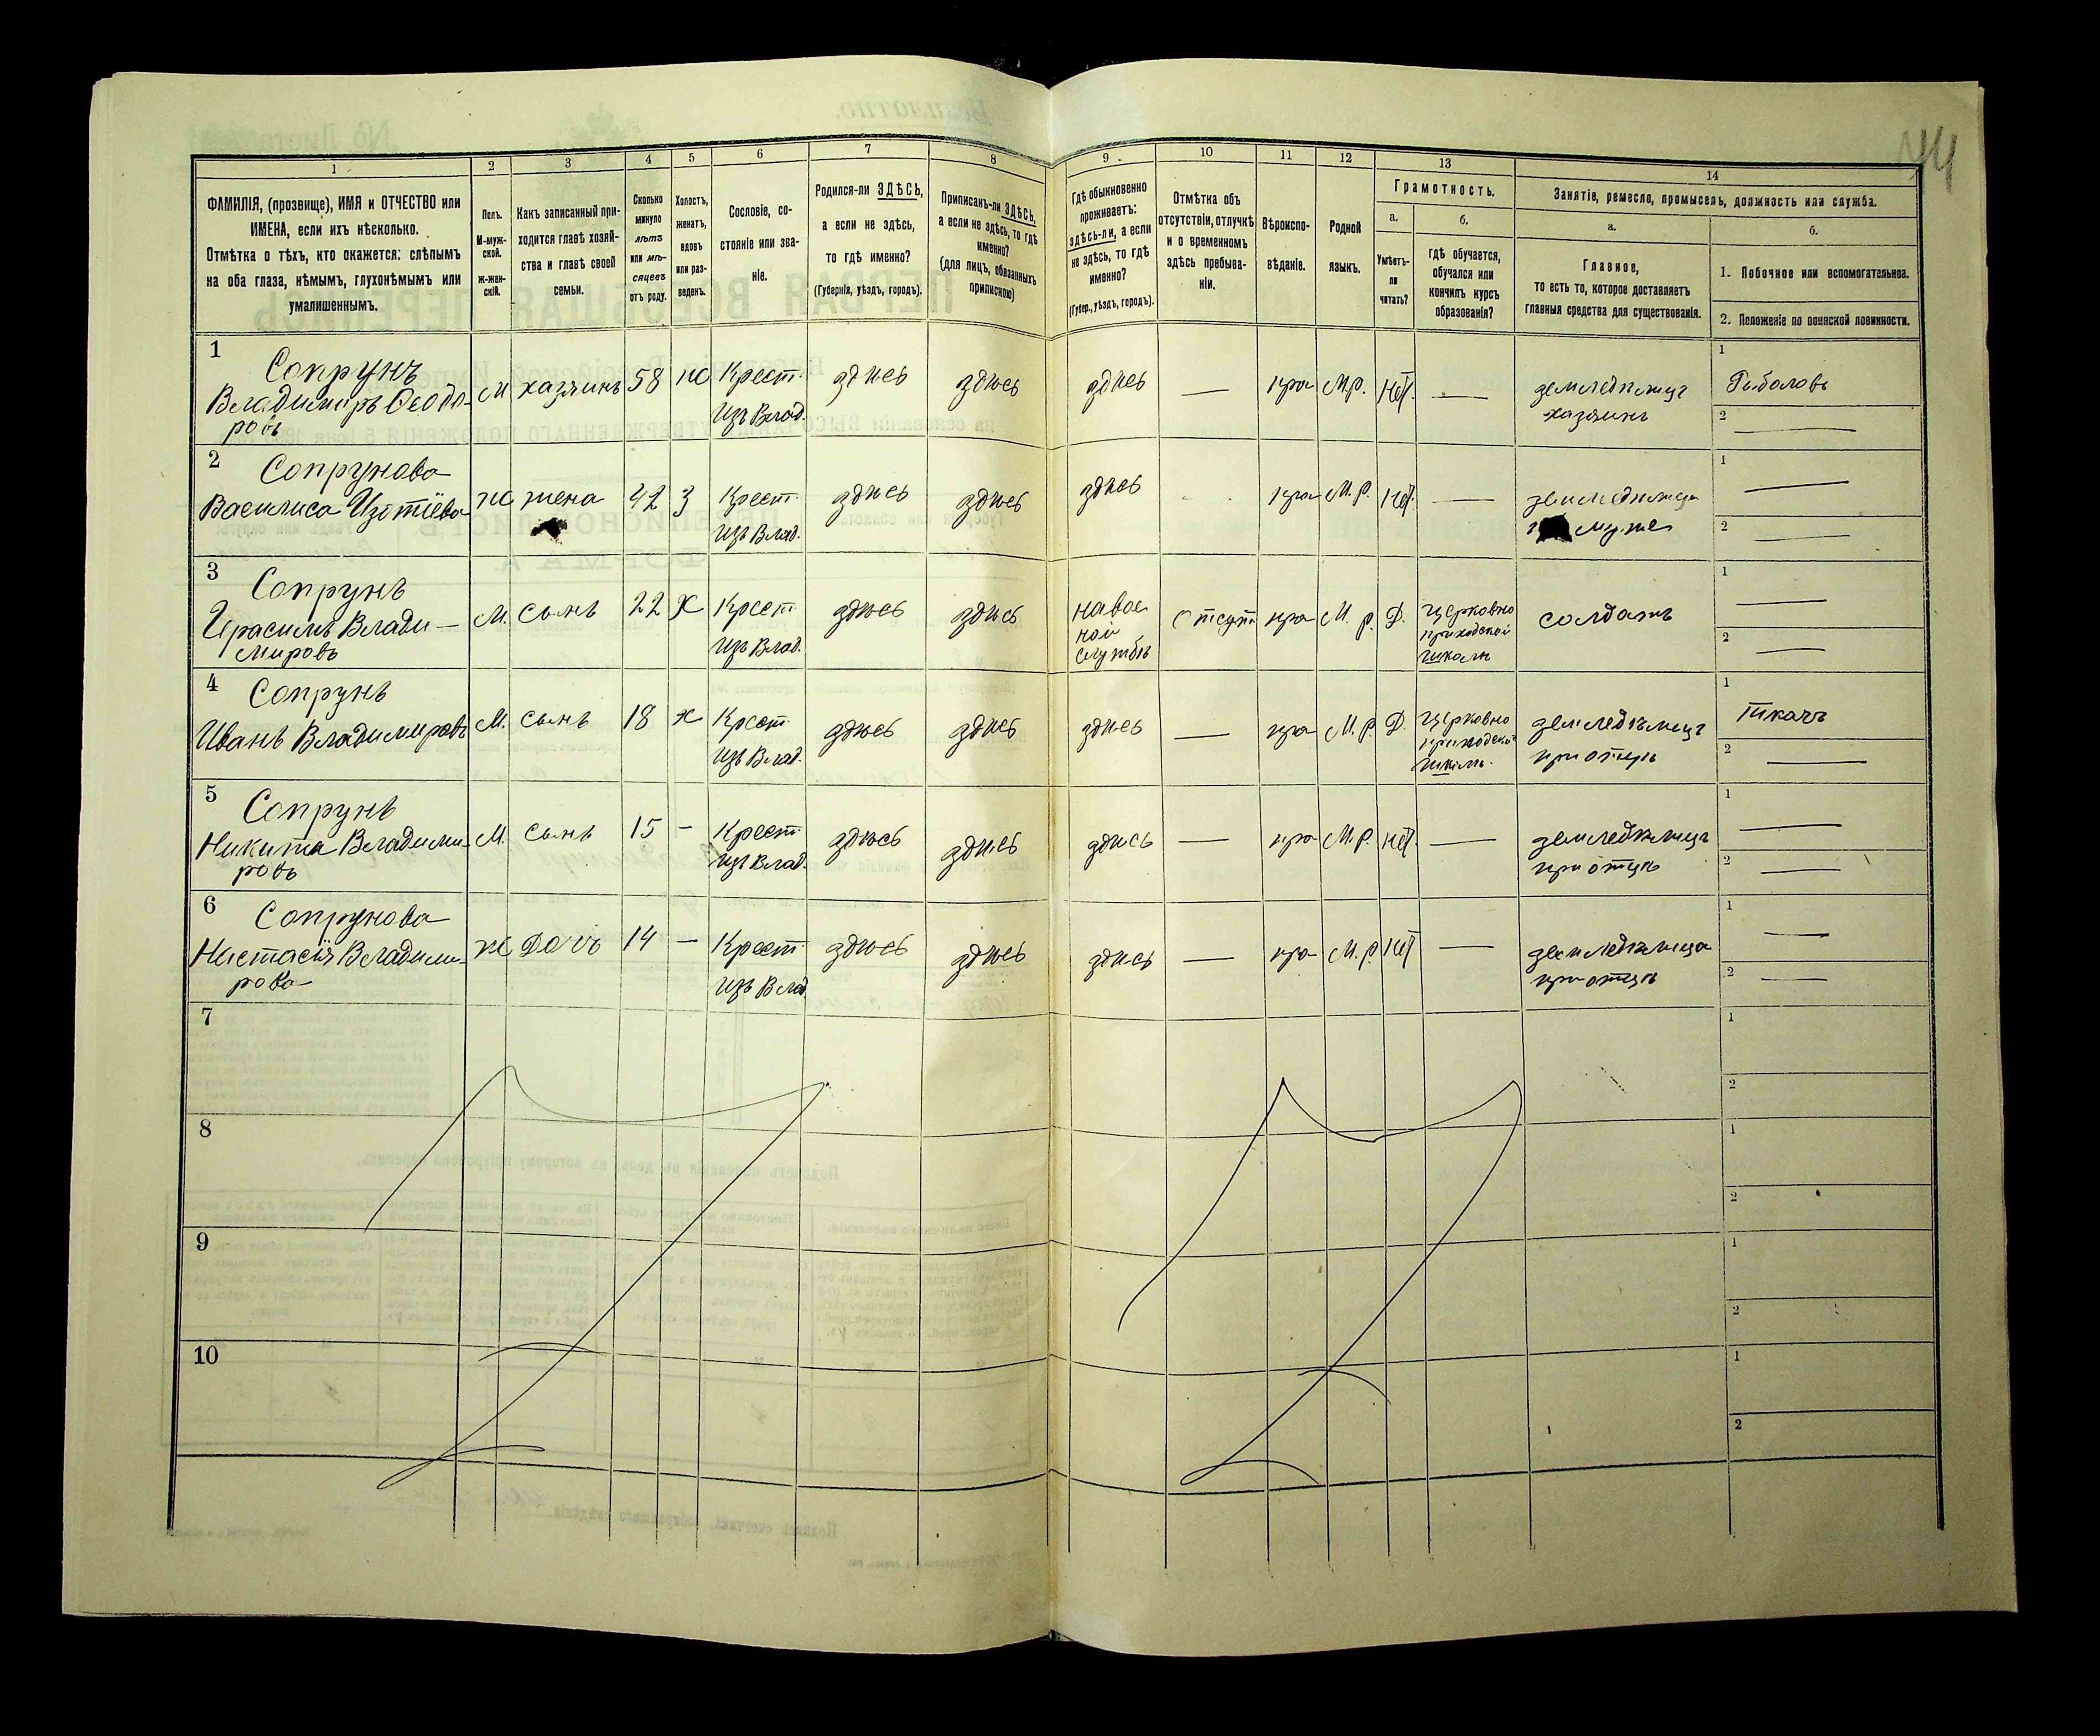 44
1 2 3 4 5 6 7 8 9 10 11 12 13 14
ФАМИЛІЯ, (прозвище), ИМЯ и ОТЧЕСТВО или
ИМЕНА, если ихъ нѣсколько.
Отмѣтка о тѣхъ, кто окажется: слѣпымъ
на оба глаза, нѣмымъ, глухонѣмымъ или
умалишеннымъ.
Полъ.
М-муж-
ской.
Ж-жен-
скій.
Какъ записанный при-
ходится главѣ хозяй-
ства и главѣ своей
семьи.
Сколько
минуло
лѣтъ
или мѣ-
сяцевъ
отъ роду.
Холостъ,
женатъ,
вдовъ
или раз-
веденъ.
Сословіе, со-
стояніе или зва-
ніе.
Родился-ли ЗДѢСЬ,
а если не здѣсь,
то гдѣ именно?
(Губернія, уѣздъ, городъ).
Приписанъ-ли ЗДѢСЬ,
а если не здѣсь, то гдѣ
именно?
(для лицъ, обязанныхъ
припискою)
Гдѣ обыкновенно
проживаетъ:
здѣсь-ли, а если
не здѣсь, то гдѣ
именно?
(Губер., уѣздъ, городъ).
Отмѣтка объ
отсутствіи, отлучкѣ
и о временномъ
здѣсь пребыва-
ніи.
Вѣроиспо-
вѣданіе.
Родной
языкъ.
Грамотность.
а.
Умѣетъ-
ли
читать?
б.
Гдѣ обучается,
обучался или
кончилъ курсъ
образованія?
Занятіе, ремесло, промыселъ, должность или служба.
а.
Главное,
то есть то, которое доставляетъ
главныя средства для существованія.
б.
1. Побочное или вспомогательное.
2. Положеніе по воинской повинности.
1 Сопрунъ
Владимиръ Ѳеодо-
ровъ
М хазяинъ 58 Ж Крест.
изъ Влад.
здѣсь здѣсь здѣсь — пра М.р. Нѣт. —
земледѣлецъ
хазяинъ
1 Рыболовъ
2 —
2 Сопрунова
Василиса Изотіева
Ж жена 42 З Крест.
изъ Влад.
здѣсь здѣсь здѣсь пра М.р. Нѣт. —
земледѣлица
муже
1 —
2 —
3 Сопрунъ
Ирасимъ Влади-
мировъ
М. сынъ 22 Х Крест.
изъ Влад.
здѣсь здѣсь
на вое
ной
службѣ
Отсут пра М.р. Д.
Церковно
приходской
школѣ
солдатъ
1 —
2 —
4 Сопрунъ
Иванъ Владимировъ
М. сынъ 18 Х Крест.
изъ Влад.
здѣсь здѣсь здѣсь — пра М.р. Д.
Церковно
приходской
школѣ
земледѣлецъ
при отцѣ
1 ткачъ
2 —
5 Сопрунъ
Никита Владими-
ровъ
М. сынъ 15 — Крест.
изъ Влад.
здѣсь здѣсь здѣсь — пра М.р. Нѣт. —
земледѣлецъ
при отцѣ
1 —
2 —
6 Сопрунова
Настасія Владими-
рова
Ж Дочь 14 — Крест
изъ Влад.
здѣсь здѣсь здѣсь — пра М.р. Нѣт —
земледѣлица
при отцѣ
1 —
2 —
7
1
2
8
1
2
9
1
2
10
1
2